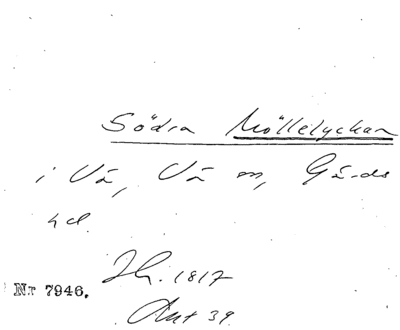 Södra Möllelyckan
i Vä, Vä sn, Gärds
hd.
Jb. 1817
Nr 7946.
Akt 39.